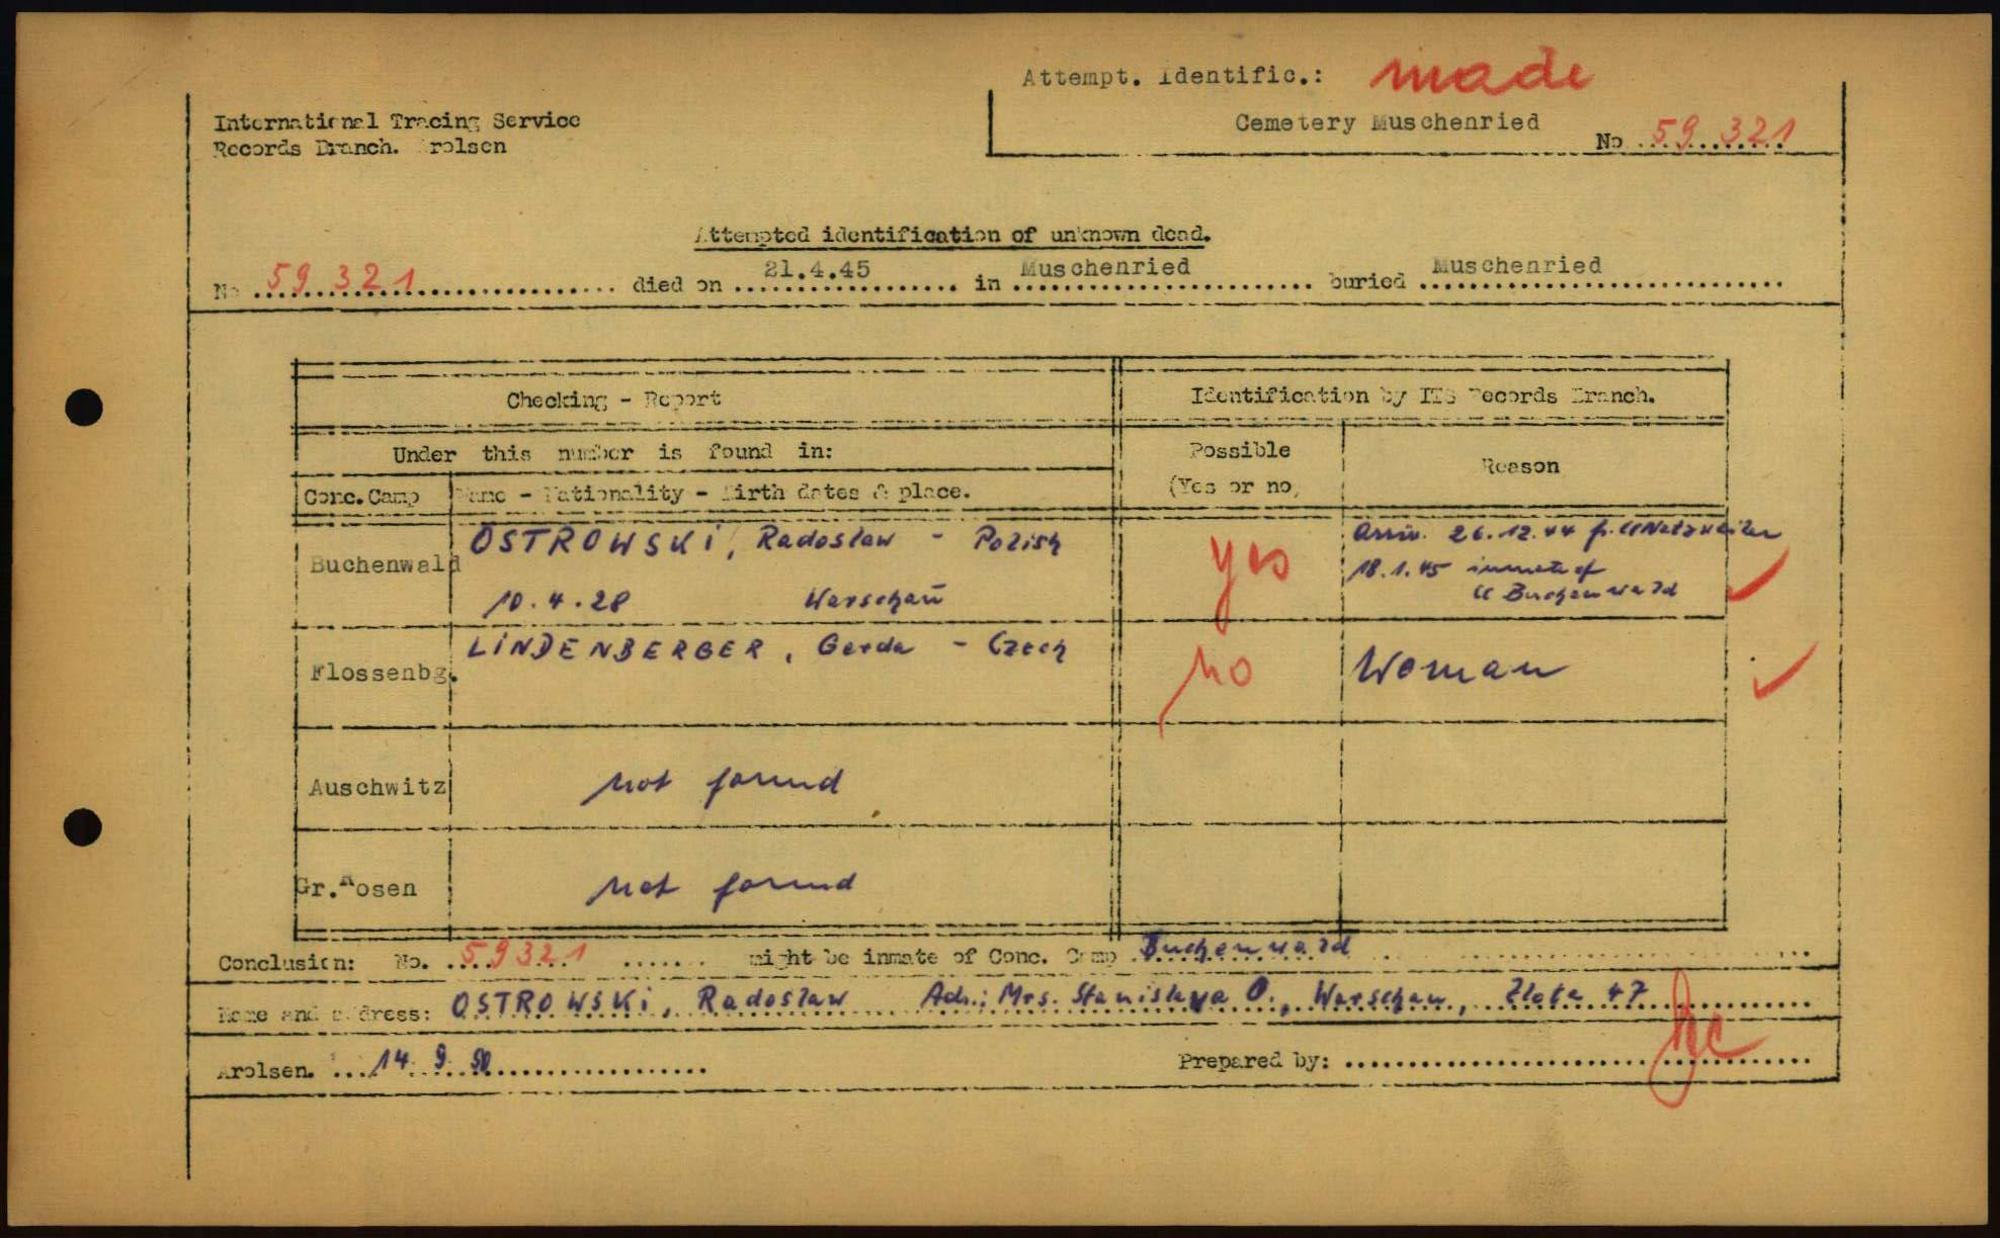 Attempt. Identific.: made
International Tracing Service
Records Branch. Arolsen
Cemetery Muschenried
No 59 321
Attempted identification of unknown dead.
No 59 321 died on 21.4.45 in Muschenried buried Muschenried
Checking - Report
Identification by ITS Records Branch.
Under this number is found in:
Possible
(Yes or no)
Reason
Conc. Camp
Name - Nationality - Birth dates & place.
Buchenwald
OSTROWSKI, Radoslaw - Polish
10.4.28 Warschau
yes
Arriv. 26.12.44 f. Cl Natzweiler
18.1.45 inmate of
Cl Buchenwald
Flossenbg.
LINDENBERGER, Gerda - Czech
no
Woman
Auschwitz
not found
Gr. Rosen
not found
Conclusion: No. 59321 might be inmate of Conc. Camp Buchenwald
Name and address: OSTROWSKI, Radoslaw Adr.: Mrs. Stanislawa O., Warschau, Zlota 47
Arolsen. 14 9 50
Prepared by: